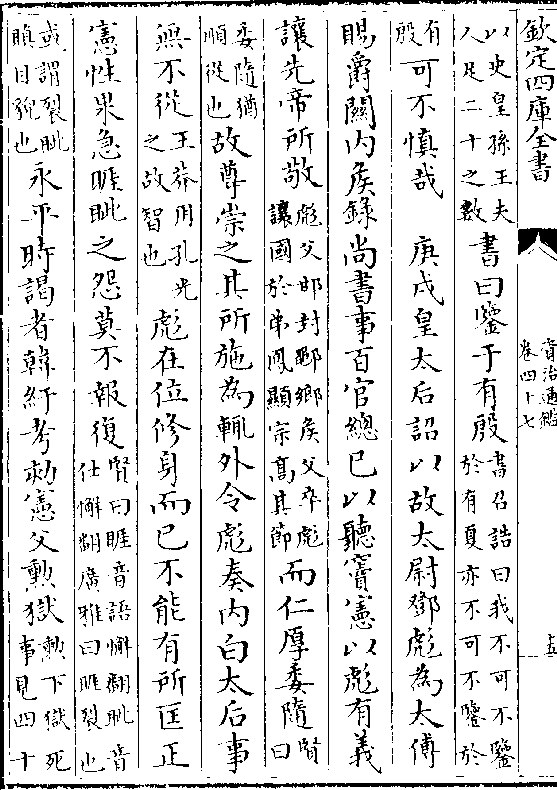 欽定四庫全書
資治通鑑
卷四十七
十五
以史皇孫王夫
人足二十之數
書曰鑒于有殷
書召誥曰我不可不鑒
於有夏亦不可不鑒於
有
殷
可不慎哉 庚戌皇太后詔以故太尉鄧彪為太傅
賜爵關內侯錄尚書事百官總已以聽竇憲以彪有義
讓先帝所敬
彪父邯封鄳鄉侯父卒彪
讓國於弟鳳顯宗髙其節
而仁厚委隨
賢曰
委隨猶
順從也
故尊崇之其所施為輒外令彪奏内白太后事
無不從
王莽用孔光
之故智也
彪在位修身而已不能有所匡正
憲性果急睚眦之怨莫不報復
賢曰睚音語懈翻眦音
仕懈翻廣雅曰睚裂也
或謂裂眦
瞋目貌也
永平時謁者韓紆考劾憲父勲獄
勲下獄死
事見四十